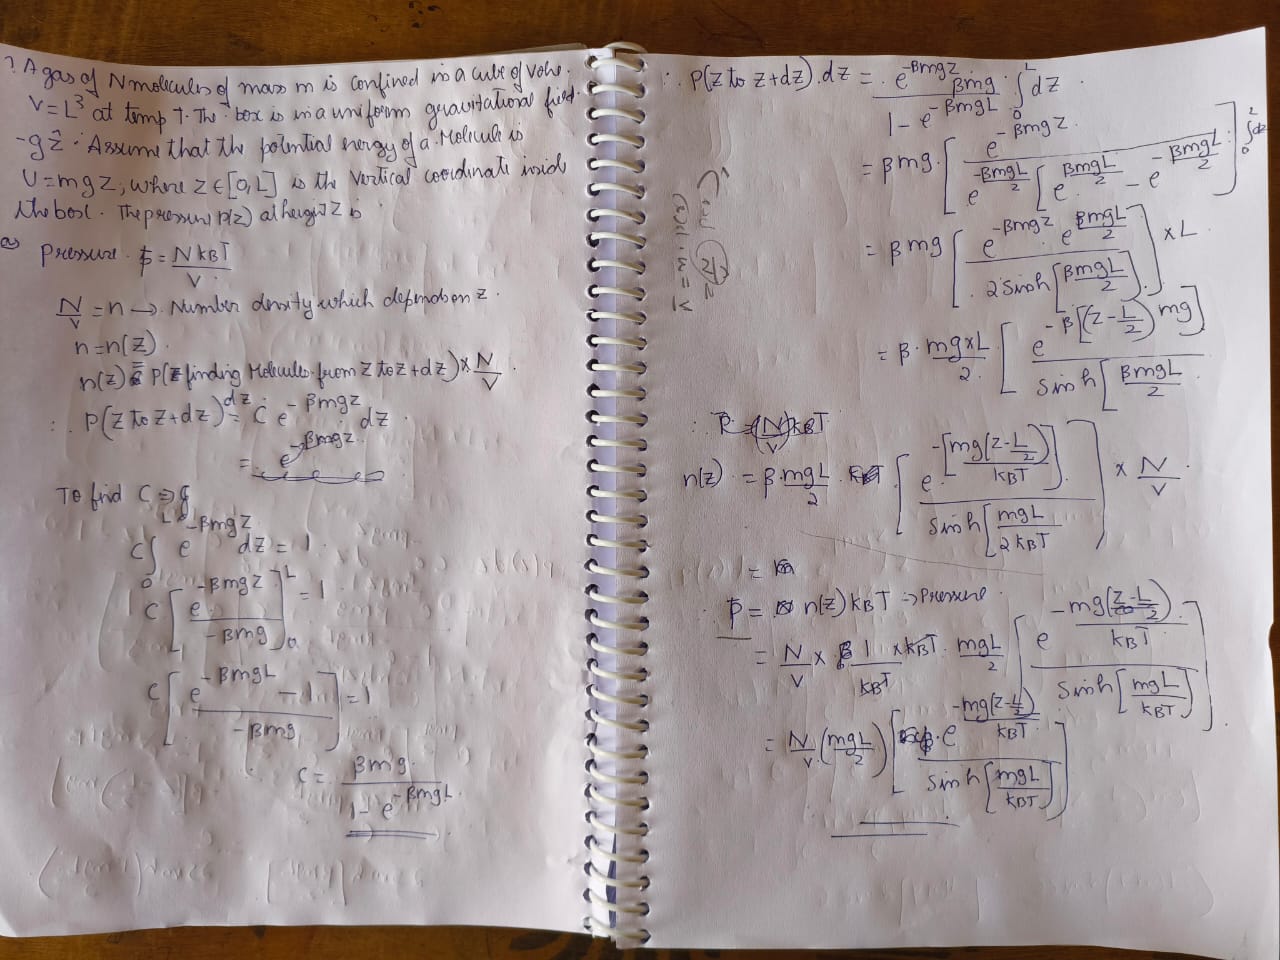 ? A gas of N molecules of mass m is confined in a cube of volu.
V = L³ at temp T. The box is in a uniform gravitational field.
-gẑ. Assume that the potential energy of a Molecule is
U = mgz, where z ∈ [0,L] is the Vertical coordinate insid
the box. The pressure P(z) at height z is
a) Pressure. P = N kBT / V.
N/V = n → Number density which depends on z.
n = n(z).
n(z) = P(finding Molecules from z to z+dz) × N/V.
∴ P(z to z+dz) dz = C e^{-βmgz} . dz
= e^{-βmgz}
To find C ⇒
C ∫₀^L e^{-βmgz} dz = 1
C [ e^{-βmgz} / -βmg ]₀^L = 1
C [ e^{-βmgL} - 1 / -βmg ] = 1
C = βmg / 1 - e^{-βmgL}.
∴ P(z to z+dz).dz = e^{-βmgz} βmg / 1 - e^{-βmgL} . ∫₀^L dz
= βmg . [ e^{-βmgz} / e^{-βmgL/2} [ e^{βmgL/2} - e^{-βmgL/2} ] ] ∫₀^L dz
= βmg [ e^{-βmgz} . e^{βmgL/2} / 2 sinh [βmgL/2] ] × L.
= β . mg×L / 2 . [ e^{-β[(z - L/2) mg]} / sinh [βmgL/2] ]
∴ P = (N/V) kBT
n(z) = β . mgL/2 . [ e^{-[mg(z - L/2) / kBT]} / sinh [mgL / 2kBT] ] × N/V.
=
∴ P = n(z) kBT ⇒ Pressure.
= N/V × 1/kBT × kBT . mgL/2 [ e^{-mg(z - L/2) / kBT} / sinh [mgL / kBT] ].
= N/V . (mgL/2) [ e^{-mg(z - L/2) / kBT} / sinh [mgL / kBT] ]